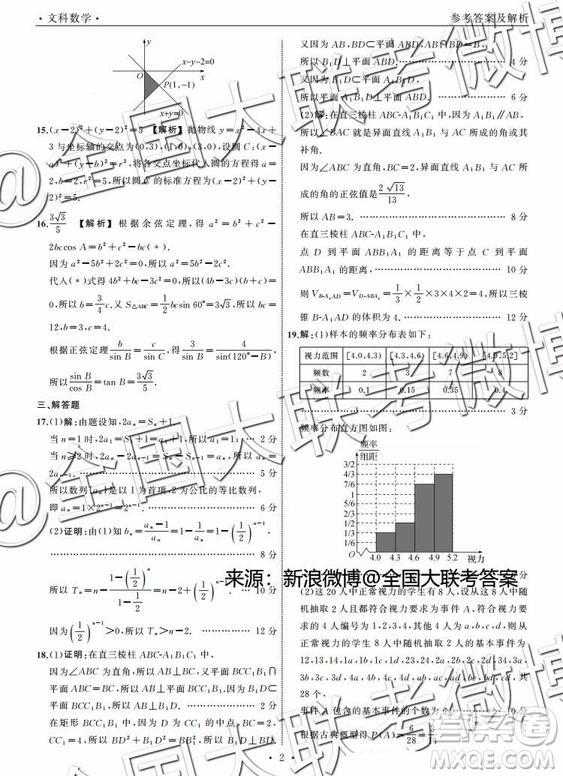 ·文科数学·
参考答案及解析
y
x-y-2=0
O
P(1,-1)
x+y=0
15.(x-2)²+(y-2)²=5 【解析】抛物线 y=x²-4x+
3 与坐标轴的交点为(0,3),(1,0),(3,0),设圆 C:(x-
a)²+(y-b)²=r²,将各点坐标代入圆的方程得 a=
2,b=2,r²=5,所以圆 C 的标准方程为(x-2)²+(y-
2)²=5.
16. 3√3/5 【解析】根据余弦定理,得 a²=b²+c²-
2bccos A=b²+c²-bc(*).
因为 a²-5b²+2c²=0,所以 a²=5b²-2c².
代入(*)式得 4b²+bc-3c²=0,所以(4b-3c)(b+c)=
0,所以 b=3/4 c.又 S△ABC=1/2 bcsin 60°=3√3,所以 bc=
12,b=3,c=4.
根据正弦定理 b/sin B=c/sin C,得 3/sin B=4/sin(120°-B),
所以 sin B/cos B=tan B=3√3/5.
三、解答题
17.(1)解:由题设知,2aₙ=Sₙ+1.
当 n=1 时,2a₁=S₁+1=a₁+1,所以 a₁=1. 2 分
当 n≥2 时,2aₙ-2aₙ₋₁=Sₙ-Sₙ₋₁=aₙ,所以 aₙ=
2aₙ₋₁. 5 分
所以数列{aₙ}是以 1 为首项,2 为公比的等比数列,
即 aₙ=1×2ⁿ⁻¹=2ⁿ⁻¹. 6 分
(2)证明:由(1)知 bₙ=(aₙ-1)/aₙ=1-1/aₙ=1-(1/2)ⁿ⁻¹.
8 分
所以 Tₙ=n-(1-(1/2)ⁿ)/(1-1/2)=n-2+(1/2)ⁿ⁻¹. 10 分
因为(1/2)ⁿ⁻¹>0,所以 Tₙ>n-2. 12 分
18.(1)证明:在直三棱柱 ABC-A₁B₁C₁ 中,
因为∠ABC 为直角,所以 AB⊥BC,又平面 BCC₁B₁∩
平面 ABC=BC,所以 AB⊥平面 BCC₁B₁,
所以 AB⊥B₁D. 2 分
在矩形 BCC₁B₁ 中,因为 D 为 CC₁ 的中点,BC=2,
CC₁=4,所以 BD²+B₁D²=BB₁²,所以 B₁D⊥BD.
又因为 AB,BD⊂平面 ABD,AB∩BD=B,
所以 B₁D⊥平面 ABD. 4 分
又因为 B₁D⊂平面 AB₁D,
所以平面 AB₁D⊥平面 ABD. 6 分
(2)解:在直三棱柱 ABC-A₁B₁C₁ 中,因为 A₁B₁∥AB,
所以∠ABC 就是异面直线 A₁B₁ 与 AC 所成的角或其
补角.
因为∠ABC 为直角,BC=2,异面直线 A₁B₁ 与 AC 所
成的角的正弦值是 2√13/13,
所以 AB=3. 8 分
在直三棱柱 ABC-A₁B₁C₁ 中,
点 D 到平面 ABB₁A₁ 的距离等于点 C 到平面
ABB₁A₁ 的距离, 10 分
则 V=V=1/3×1/2×3×4×2=4,所以三棱
锥 B-A₁AD 的体积为 4. 12 分
19.解:(1)样本的频率分布表如下:
视力范围 [4.0,4.3) [4.3,4.6) [4.6,4.9) [4.9,5.2]
频数 2 3 7 8
频率 0.1 0.15 0.35 0.4
3 分
频率分布直方图如图:
频率
组距
3/2
4/3
7/6
1
5/6
2/3
1/2
1/3
1/6
O 4.0 4.3 4.6 4.9 5.2 视力
来源：新浪微博@全国大联考答案
6 分
(2)这 20 人中正常视力的学生有 8 人,设从这 8 人中随
机抽取 2 人且都符合视力要求为事件 A,符合视力要求
的 4 人编号为 1,2,3,4,其他 4 人为 a,b,c,d,则从
正常视力的学生 8 人中随机抽取 2 人的基本事件为
12,13,14,1a,1b,1c,1d,23,24,2a,2b,2c,2d,34,3a,
3b,3c,3d,4a,4b,4c,4d,ab,ac,ad,bc,bd,cd,共
28 个.
事件 A 包含的基本事件的个数为 6. 10 分
根据古典概型得 P(A)=6/28
·2·
@全国大联考微博
MXQE.COM